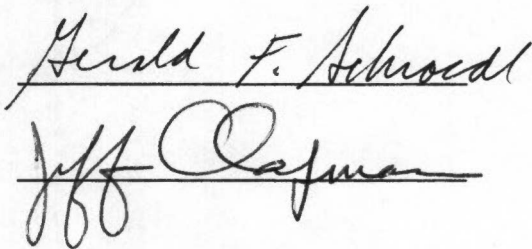 Gerald F. Schroedl
Jeff Chapman